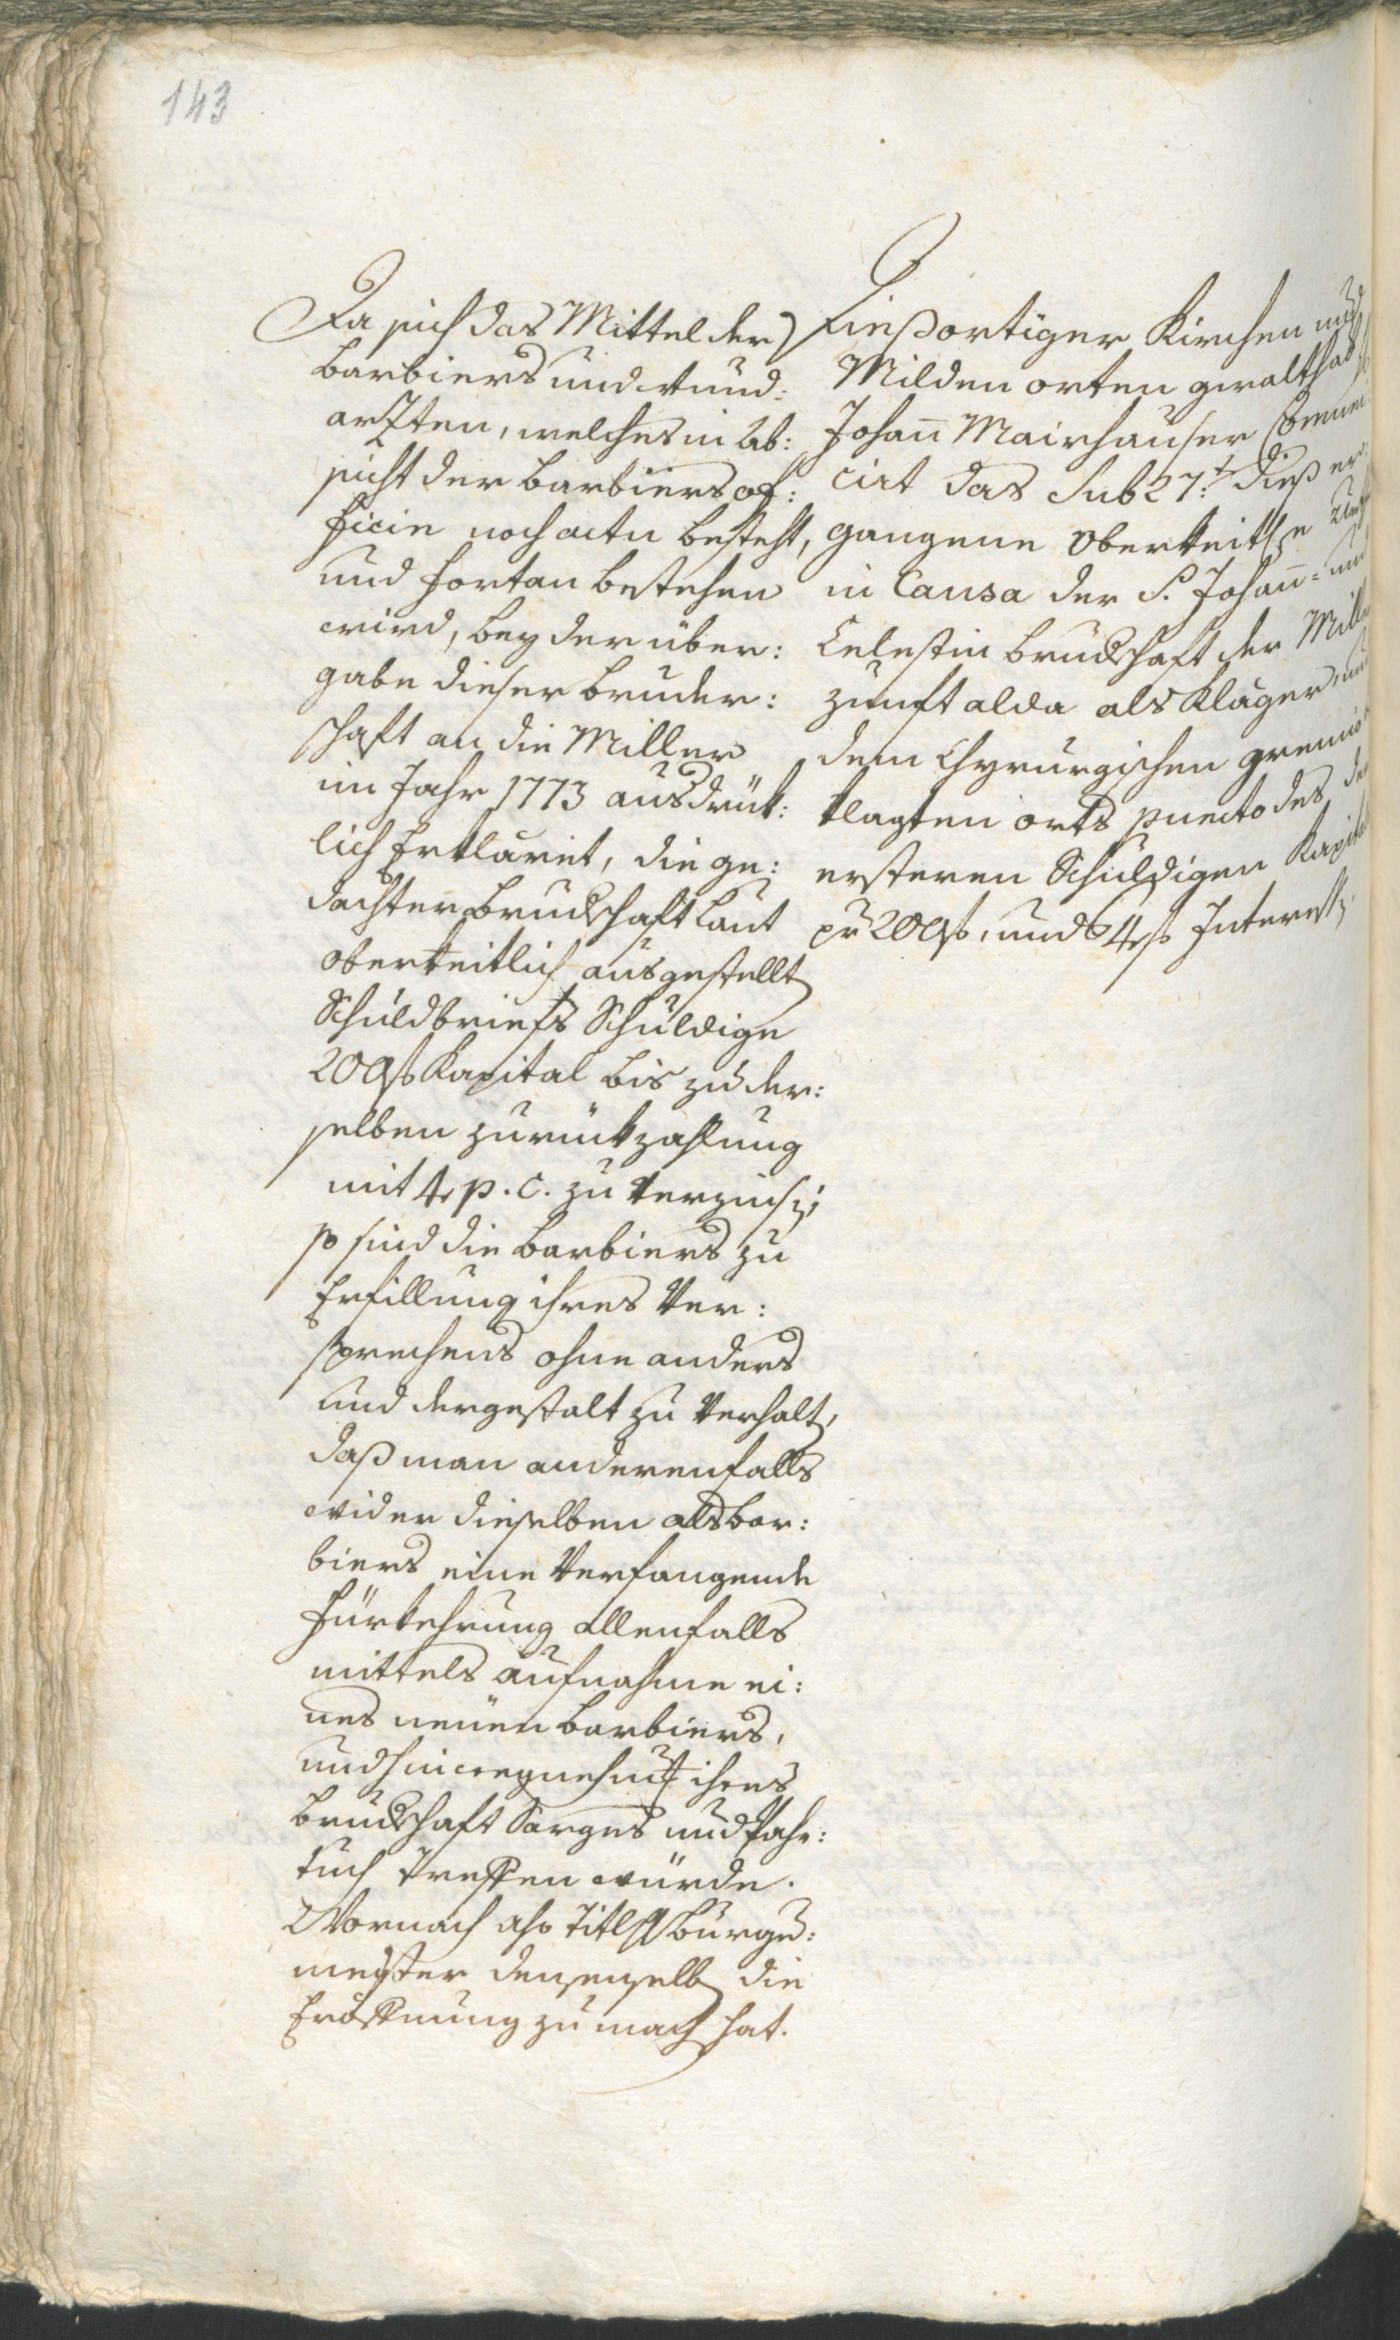 143
Da sich das Mittel der
Barbiers und Wund:
arzten, welches in Ab:
sicht der Barbiers of:
ficin noch actu besteht,
und fortan bestehen
wird, bey der über:
gabe dieser Bruder:
schaft an die Miller
im Jahr 1773 ausdrük:
lich Erkläret, die ge:
dachter Brudschaft laut
oberkeitlich ausgestellt
Schuldbriefs Schuldige
200 f Kapital bis zu der:
selben zurückzahlung
mit 4 p. C. zu verzins;
so sind die Barbiers zu
Erfillung ihres Ver:
sprechens ohne anders
und dergestalt zu verhalt,
daß man anderenfalls
wider dieselben als Bar:
biers eine Verfangende
fürkehrung allenfalls
mittels aufnahme ei:
nes neüen Barbiers,
und hinwegnehm ihres
Brudschaft Sarges und Bahr:
tuch treffen würde.
Wornach also Titl H Burge:
meister denenselb die
Eröffnung zu mach hat.
Diesortiger Kirchen und
Milden orten gewalthab
Johann Mairhauser Communi
cirt das sub 27t dieß er
gangene Oberkeitl
in Causa der S. Johann= und
Celestin Brudschaft der Miller
zunft alda als Kläger, und
dem Chyrurgischen gremio
klagten orts puncto des
ersteren Schuldigen Kapital
pr 200 f, und 4 f Interesse.